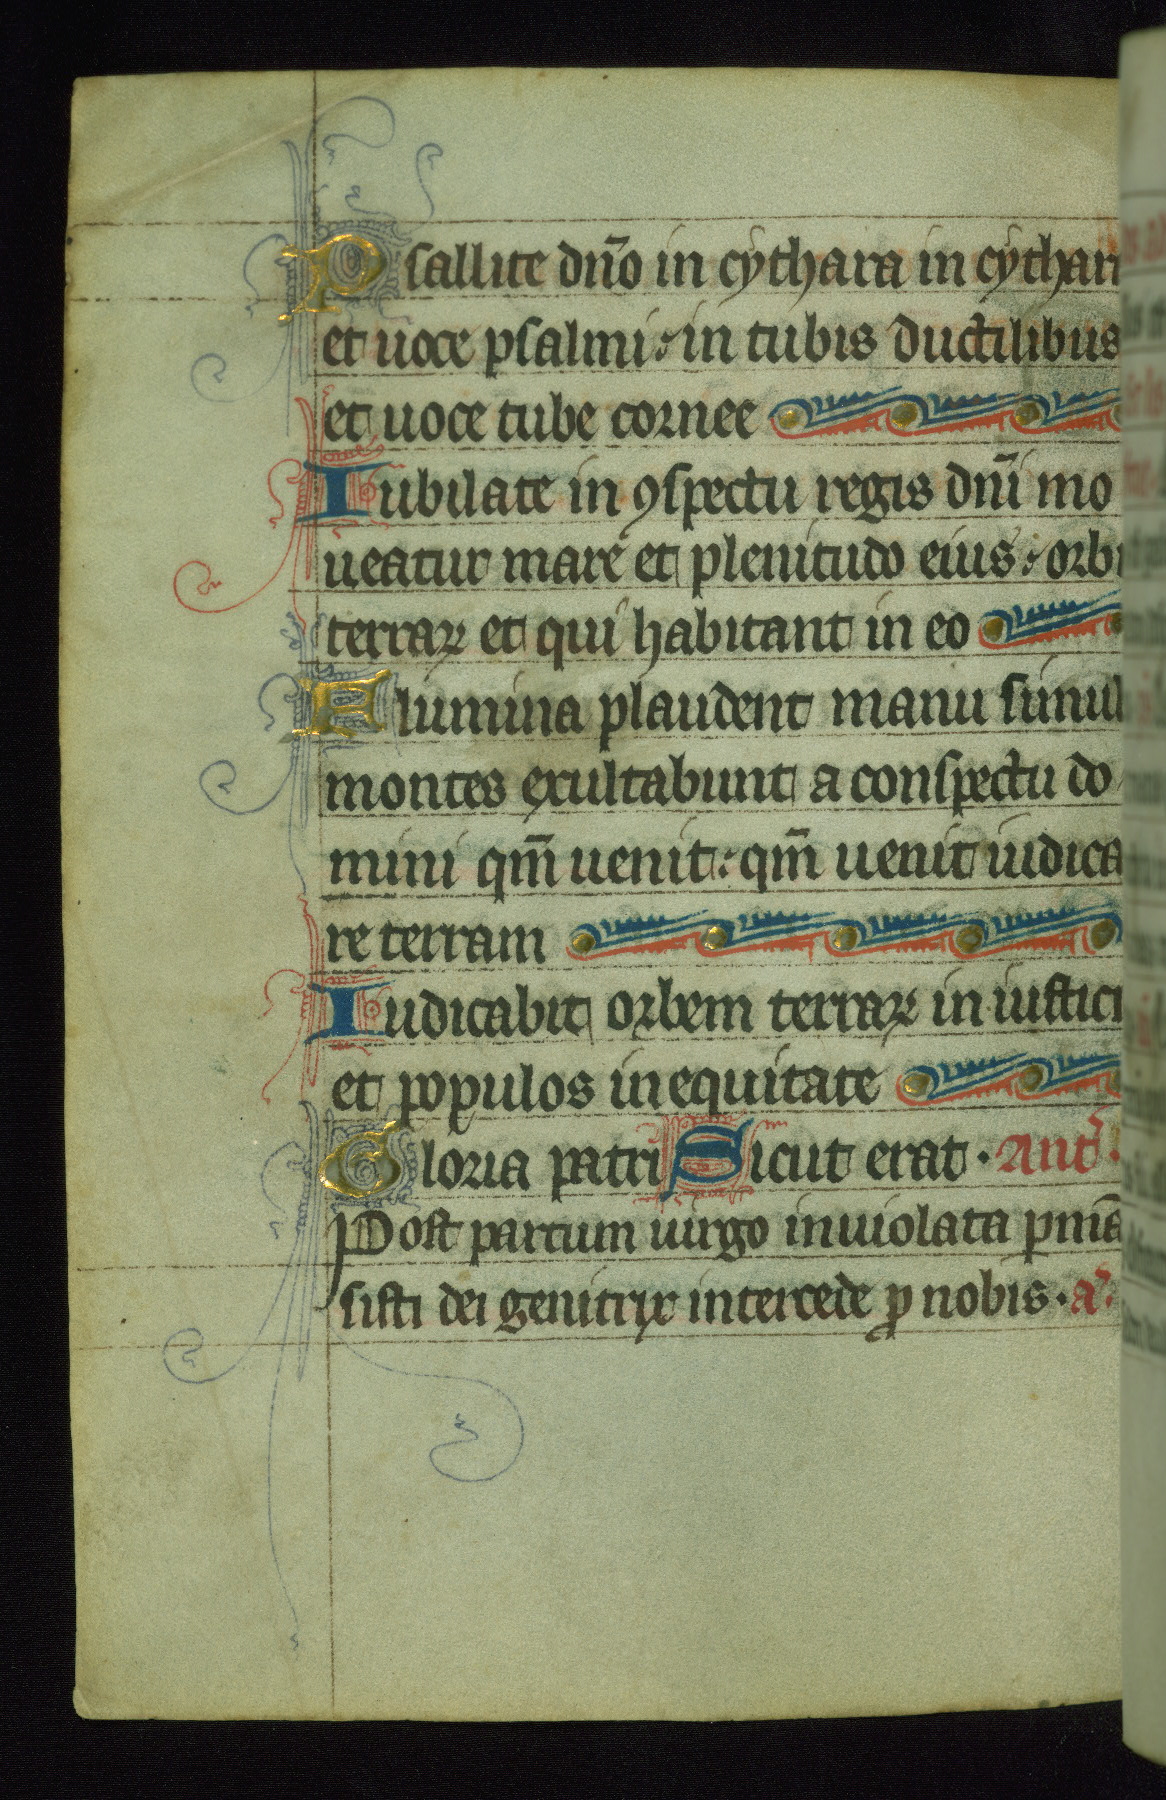 Psallite dño in cythara in cythara
et uoce psalmi: in tubis ductilibus
et uoce tube cornee
Iubilate in ꝯspectu regis dñi mo
ueatur mare et plenitudo eius: orbis
terraꝝ et qui habitant in eo
Flumina plaudent manu simul
montes exultabunt a conspectu do
mini qm̄ uenit: qm̄ uenit iudica
re terram
Iudicabit orbem terraꝝ in iustici
et populos in equitate
Gloria patri Sicut erat · Ant̄ ·
Post partum uirgo inuiolata ꝑmã
sisti dei genitrix intercede ꝓ nobis · a